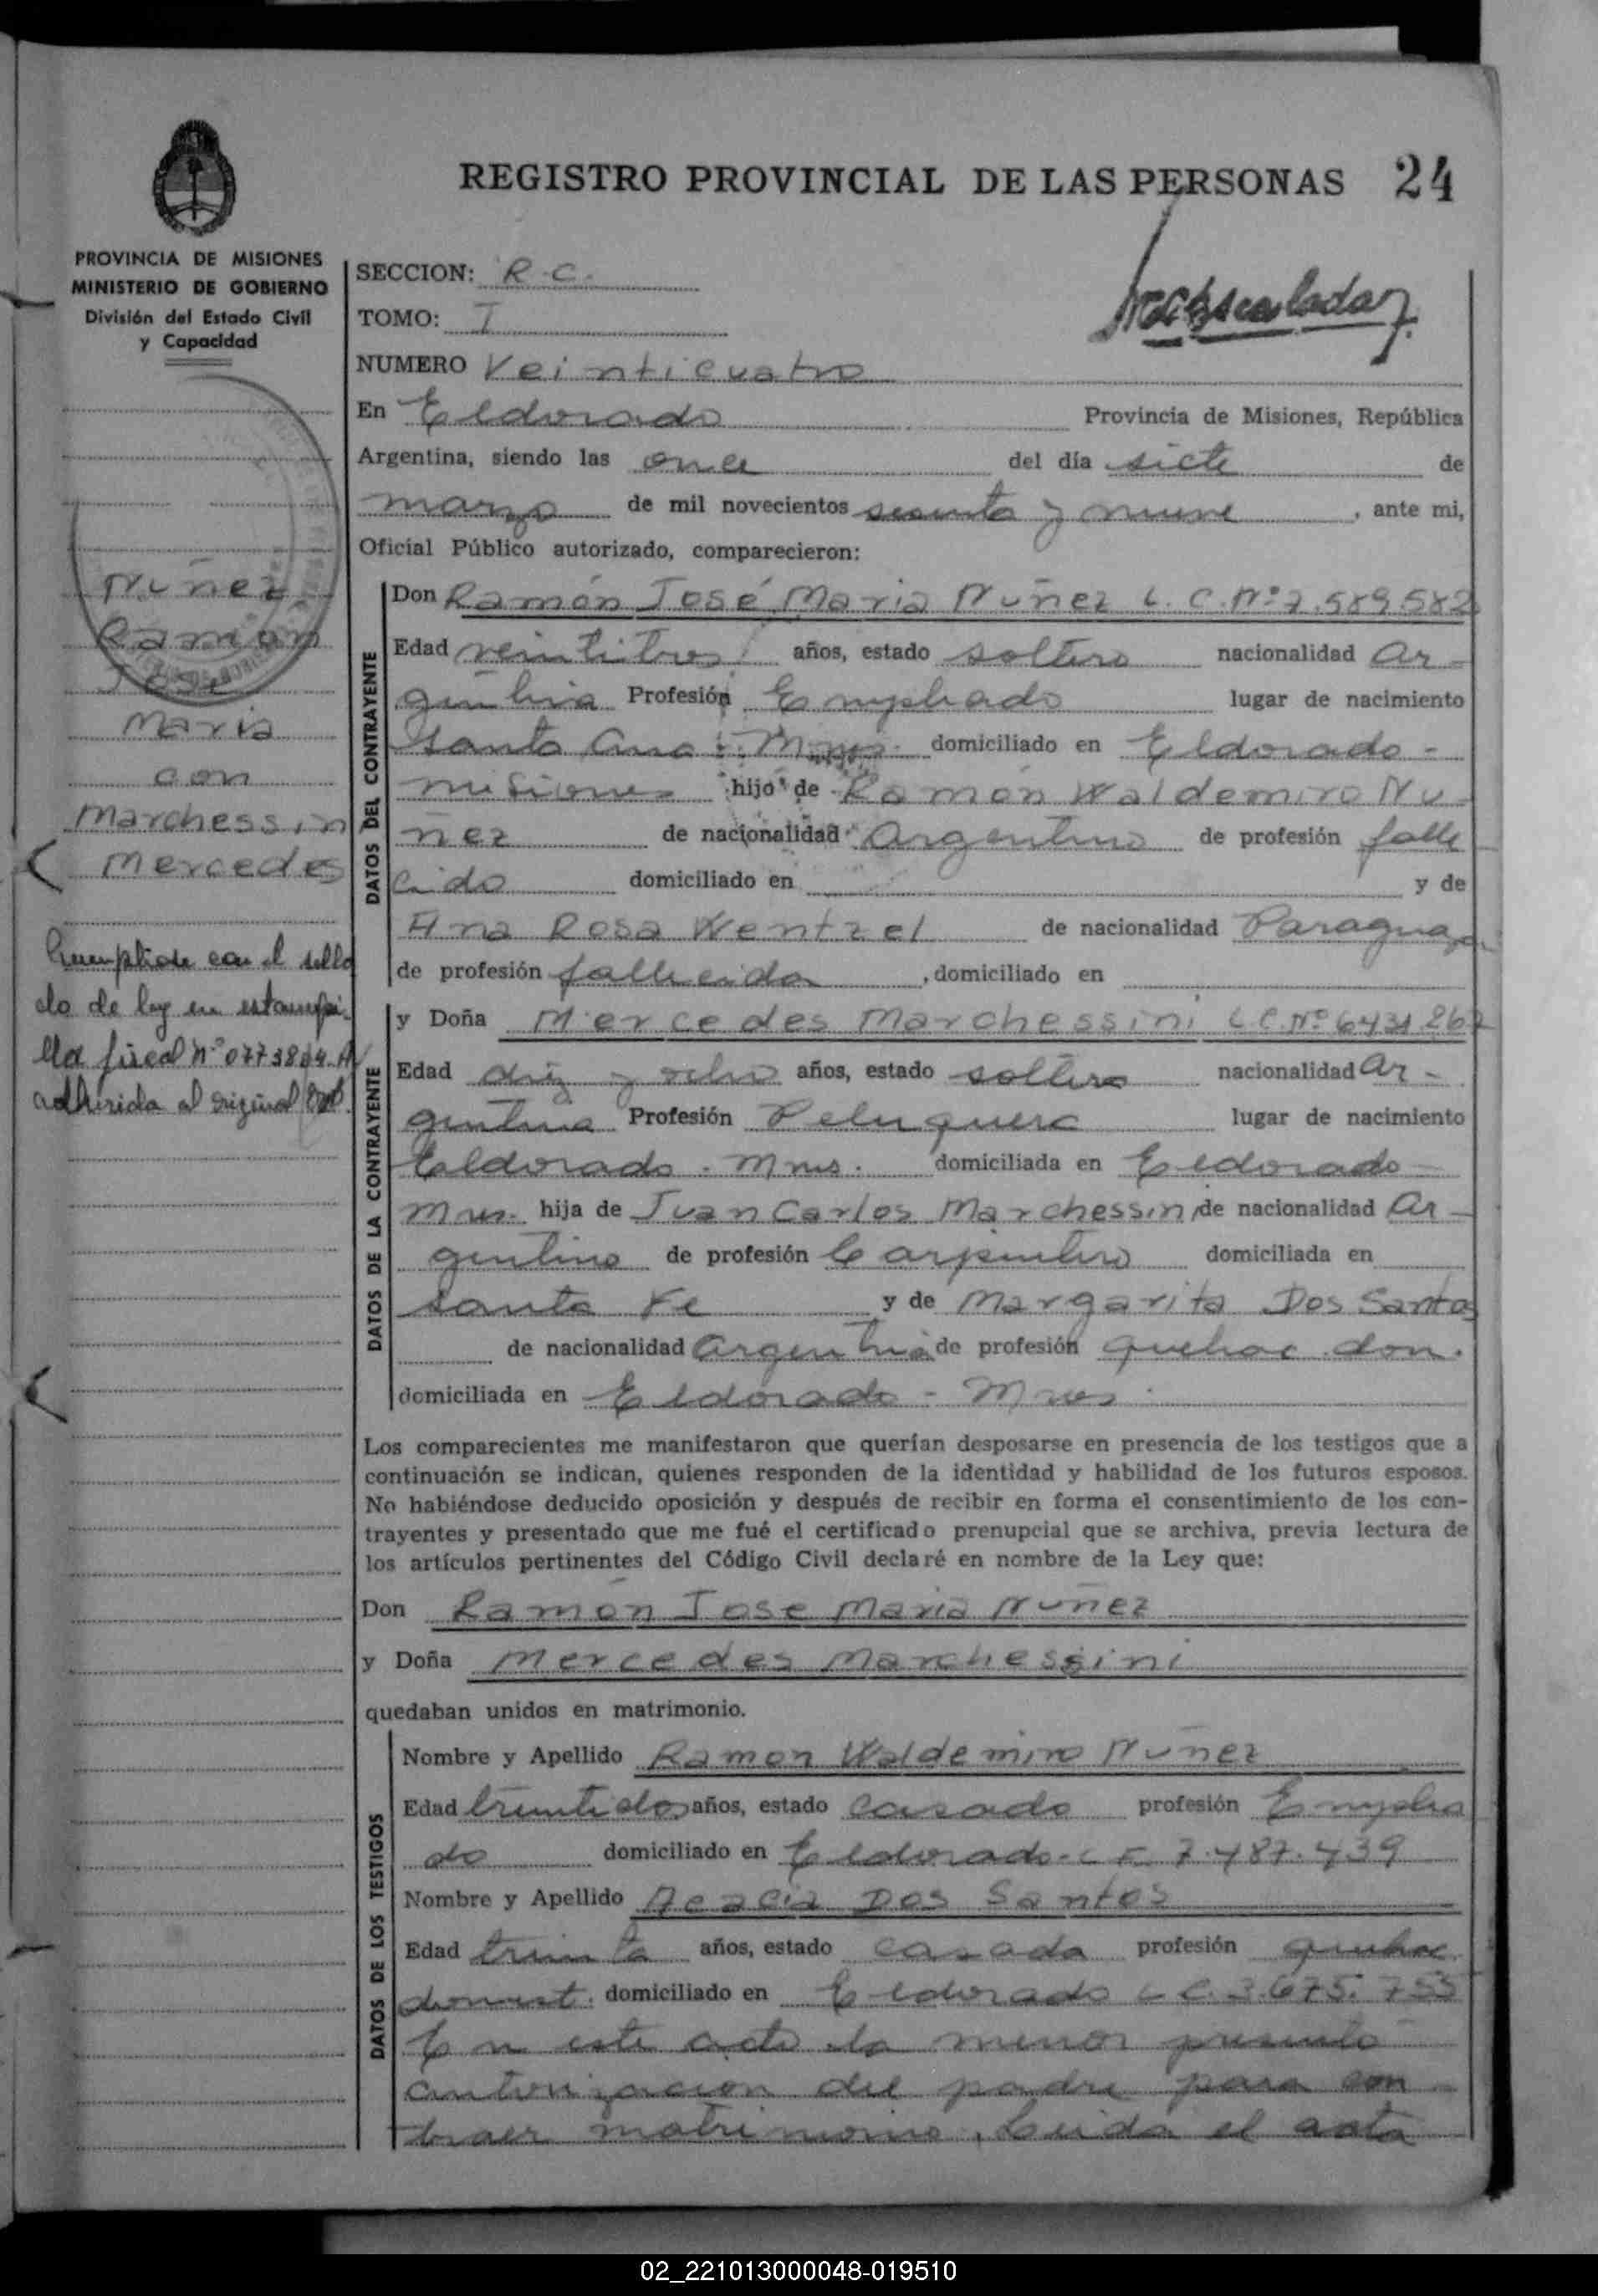 REGISTRO PROVINCIAL DE LAS PERSONAS 24
PROVINCIA DE MISIONES
MINISTERIO DE GOBIERNO
División del Estado Civil
y Capacidad
SECCION: R.C.
TOMO: I
NUMERO Veinticuatro
En Eldorado Provincia de Misiones, República
Argentina, siendo las once del día siete de
marzo de mil novecientos sesenta y nueve, ante mi,
Oficial Público autorizado, comparecieron:
Nuñez
Ramon
José
Maria
con
Marchessin
Mercedes
Cumplido con el sella
do de ley en estampi-
lla fiscal Nº
adherida al original
DATOS DEL CONTRAYENTE
Don Ramón José Maria Nuñez L. C. Nº 7.589.582
Edad veintitres años, estado soltero nacionalidad Ar-
gentina Profesión Empleado lugar de nacimiento
Santa Ana - Mnes. domiciliado en Eldorado -
Misiones hijo de Ramón Waldemiro Nu-
ñez de nacionalidad Argentino de profesión falle
cido domiciliado en y de
Ana Rosa Wentzel de nacionalidad Paraguaya
de profesión fallecida, domiciliado en
DATOS DE LA CONTRAYENTE
y Doña Mercedes Marchessini L.C. Nº 6431.267
Edad diez y ocho años, estado soltera nacionalidad Ar-
gentina Profesión Peluquera lugar de nacimiento
Eldorado. Mnes. domiciliada en Eldorado -
Mnes. hija de Juan Carlos Marchessini de nacionalidad Ar-
gentino de profesión Carpintero domiciliada en
Santa Fe y de Margarita Dos Santos
de nacionalidad Argentina de profesión quehac. dom.
domiciliada en Eldorado - Mnes.
Los comparecientes me manifestaron que querían desposarse en presencia de los testigos que a
continuación se indican, quienes responden de la identidad y habilidad de los futuros esposos.
No habiéndose deducido oposición y después de recibir en forma el consentimiento de los con-
trayentes y presentado que me fué el certificado prenupcial que se archiva, previa lectura de
los artículos pertinentes del Código Civil declaré en nombre de la Ley que:
Don Ramón Jose Maria Nuñez
y Doña Mercedes Marchessini
quedaban unidos en matrimonio.
DATOS DE LOS TESTIGOS
Nombre y Apellido Ramon Waldemiro Nuñez
Edad treintidos años, estado casado profesión Emplea
do domiciliado en Eldorado - L E 7.487.439
Nombre y Apellido Acacia Dos Santos
Edad treinta años, estado casada profesión quehac.
domest. domiciliado en Eldorado L C. 3.675.755
En este acto la menor presenta
autorización del padre para con-
traer matrimonio. Leida el acta
02_221013000048-019510